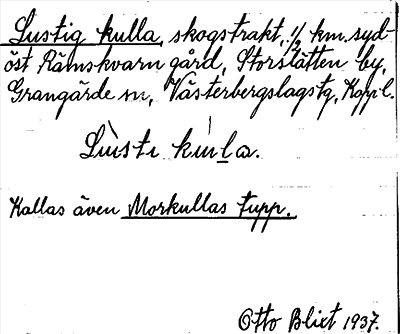 Lustig kulla, skogstrakt, 1/2 km. syd-
öst Rämskvarn gård, Storslätten by,
Grangärde sn, Västerbergslags tg, Kopp.l.
Lùsti kùl̲la.
Kallas även Morkullas tupp.
Otto Blixt 1937.